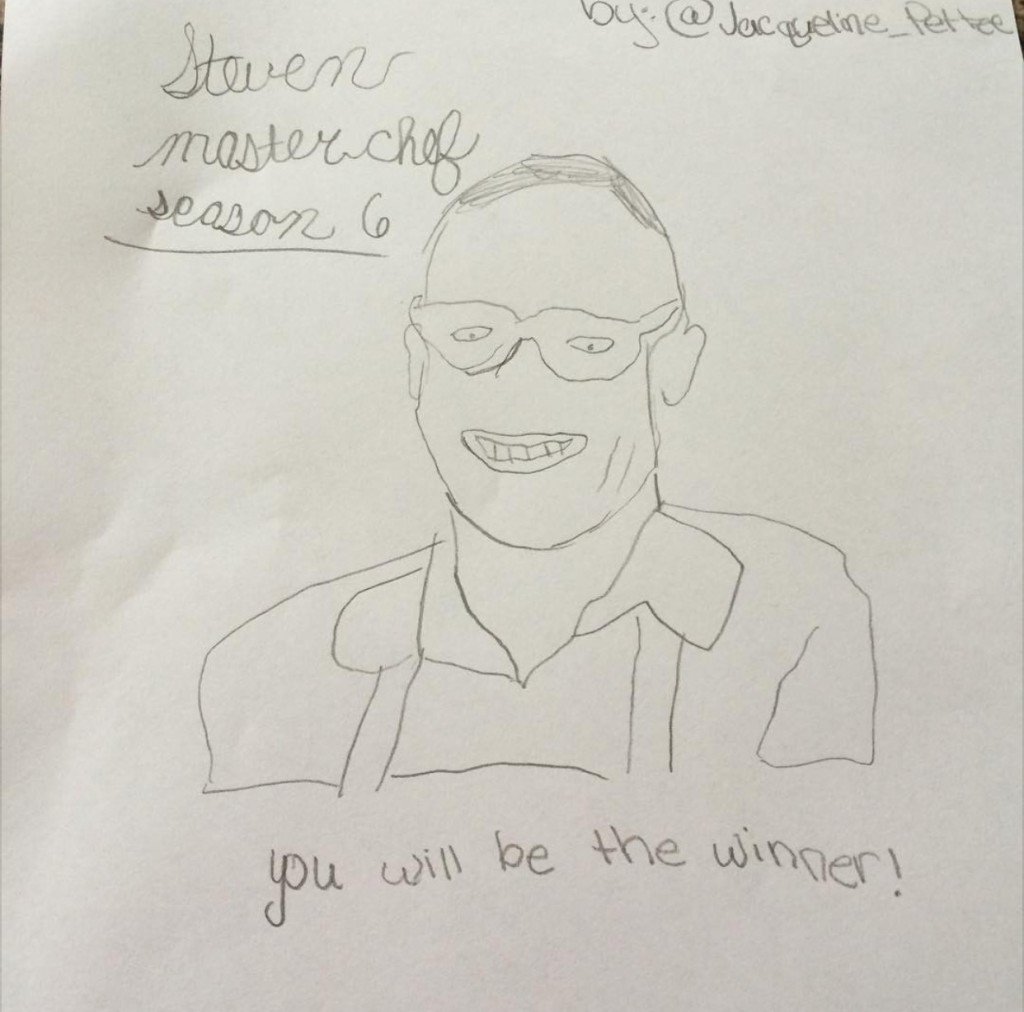 by: @Jacqueline_Pettee
Steven
master chef
season 6
you will be the winner!